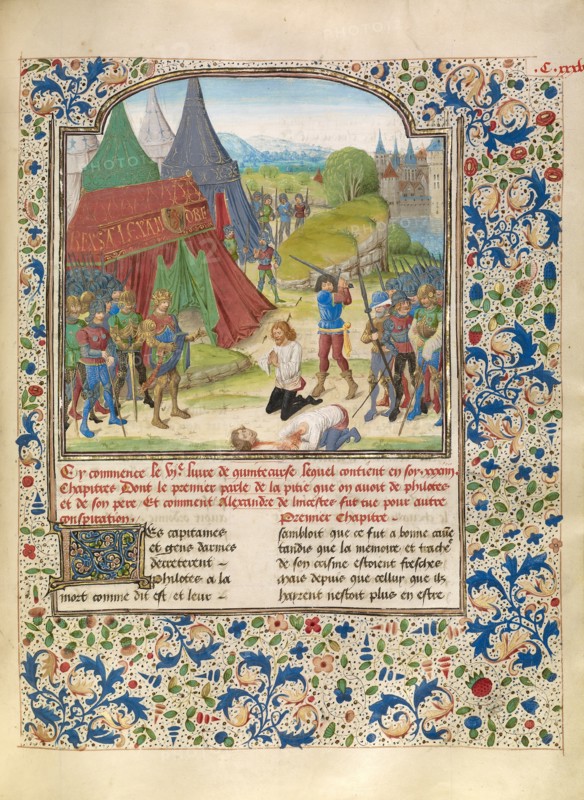 .C. xxxv
Cy commence le vje. liure de quintecurse lequel contient en soy .xxxiij.
Chapitres Dont le premier parle de la pitie que on auoit de philotes
et de son pere Et comment Alexandre de lincestes fut tue pour autre
conspiration.
Premier Chapitre
Les capitaines
et gens darmes
decreterent
philotes a la
mort comme dit est / et leur
sambloit que ce fut a bonne cause
tandis que la memoire et trache
de son crisme estoient fresches
mais depuis que cellui que ilz
haioent nestoit plus en estre